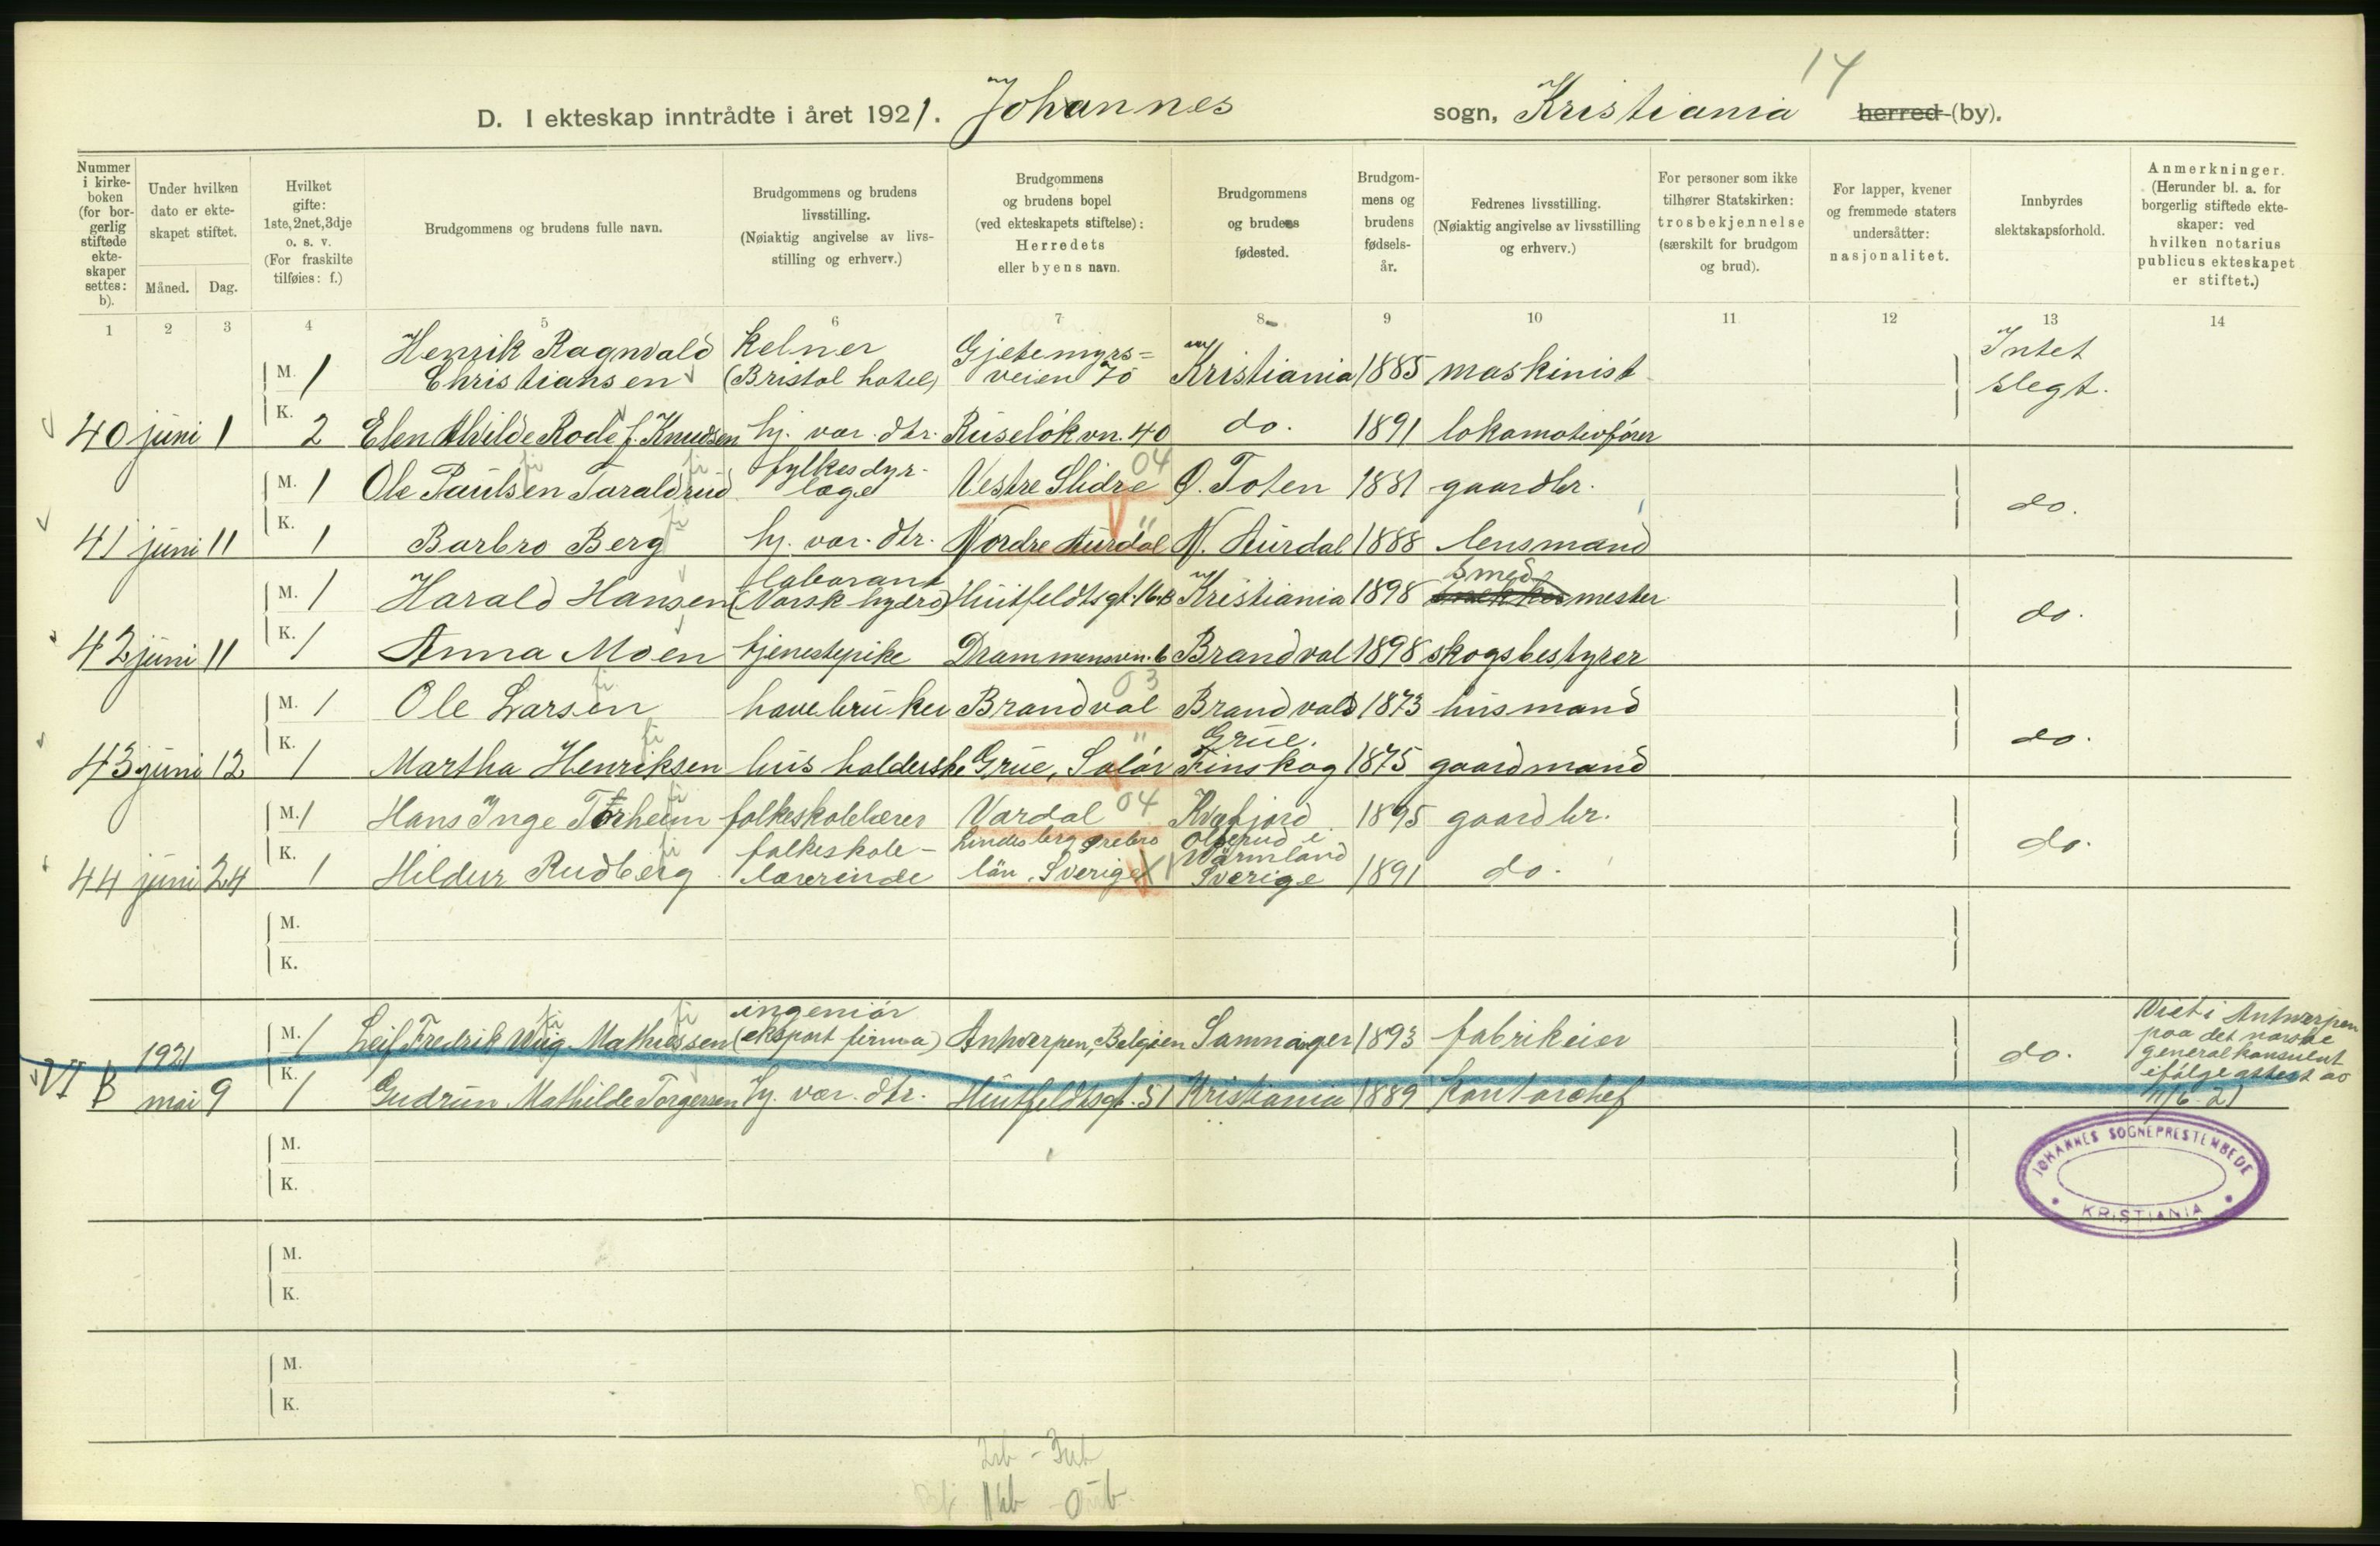 14
D. I ekteskap inntrådte i året 1921. Johannes sogn, Kristiania herred (by).
Nummer i kirkeboken (for borgerlig stiftede ekteskaper settes: b).
Under hvilken dato er ekteskapet stiftet.
Måned. Dag.
Hvilket gifte: 1ste, 2net, 3dje o. s. v. (For fraskilte tilføies: f.)
Brudgommens og brudens fulle navn.
Brudgommens og brudens livsstilling. (Nøiaktig angivelse av livsstilling og erhverv.)
Brudgommens og brudens bopel (ved ekteskapets stiftelse): Herredets eller byens navn.
Brudgommens og brudens fødested.
Brudgommens og brudens fødselsår.
Fedrenes livsstilling. (Nøiaktig angivelse av livsstilling og erhverv.)
For personer som ikke tilhører Statskirken: trosbekjennelse (særskilt for brudgom og brud).
For lapper, kvener og fremmede staters undersåtter: nasjonalitet.
Innbyrdes slektskapsforhold.
Anmerkninger. (Herunder bl. a. for borgerlig stiftede ekteskaper: ved hvilken notarius publicus ekteskapet er stiftet.)
1 2 3 4 5 6 7 8 9 10 11 12 13 14
M. 1 Henrik Ragnvald Christiansen kelner (Bristol hotel) Gjetemyrsveien 70 Kristiania 1885 maskinist Intet slegt.
40 juni 1 K. 2 Elen Alvilde Rode f. Knudsen hj. vær. dtr. Ruseløkvn. 40 do. 1891 lokomotivfører
M. 1 Ole Paulsen Taraldrud fylkesdyrlæge Vestre Slidre 04 Ø. Toten 1881 gaardbr. do.
41 juni 11 K. 1 Barbro Berg hj. vær. dtr. Nordre Aurdal " N. Aurdal 1888 lensmand
M. 1 Harald Hansen laborant (Norsk hydro) Huitfeldtsgt. 16B Kristiania 1898 smedmester do.
42 juni 11 K. 1 Anna Moen tjenestepike Drammensvn. 6 Brandval 1898 skogsbestyrer
M. 1 Ole Larsen havebruker Brandval 03 Brandvald 1873 husmand do.
43 juni 12 K. 1 Martha Henriksen husholderske Grue, Solør " Grue. Finskog 1875 gaardmand
M. 1 Hans Inge Torheim folkeskolelærer Vardal 04 Kvæfjord 1895 gaardbr. do.
44 juni 24 K. 1 Hildur Rudberg folkeskolelærerinde Lindesberg Ørebro län, Sverige Ølserud i Värmland Sverige 1891 do.
M.
K.
1921 M. 1 Leif Fredrik Wiig Mathiessen ingeniør (eksport firma) Antwerpen, Belgien Samnanger 1893 fabrikeier do. Viet i Antwerpen paa det norske generalkonsulat ifølge attest av 11/6 - 21
VI B mai 9 K. 1 Gudrun Mathilde Torgersen hj. vær. dtr. Huitfeldtsgt. 51 Kristiania 1889 kontorchef
M.
K.
JOHANNES SOGNEPRESTEMBEDE
KRISTIANIA
M.
K.
M.
K.